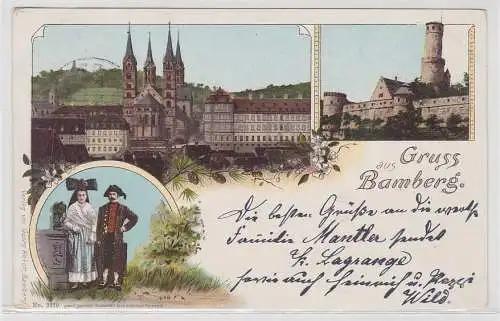 Gruss
aus
Bamberg.
Die besten Grüße an die werte
Familie Mantler sendet
Lagrange
sowie auch Heinrich u.
Wild.